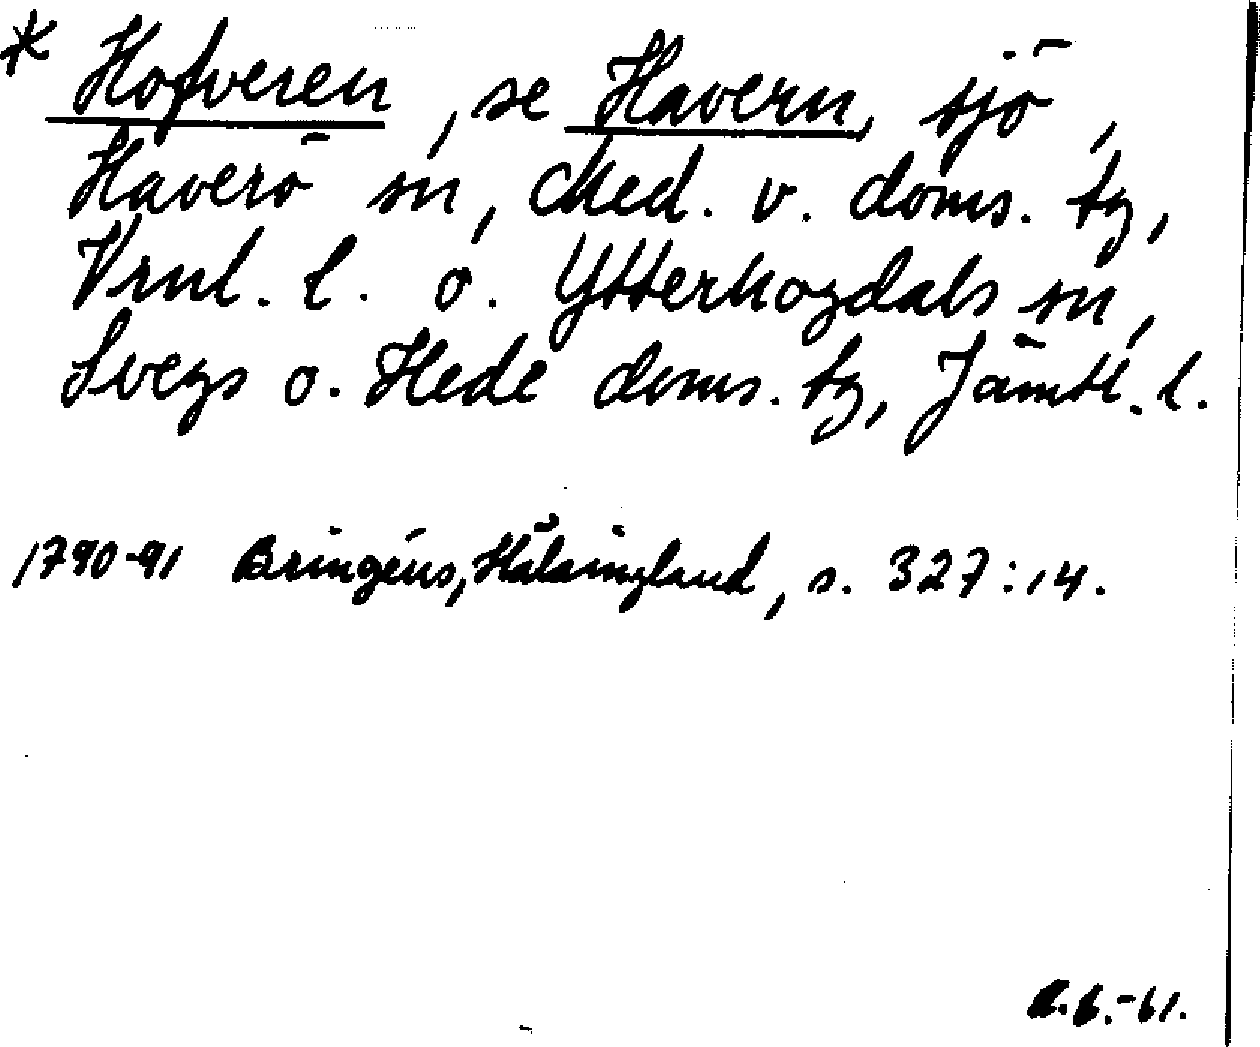 * Hofveren, se Havern, sjö,
Haverö sn, Med. v. doms. tg,
Vrnl. l. o. Ytterhogdals sn,
Svegs o. Hede doms. tg, Jämtl. l.
1790-91 Bringéus, Hälsingland, s. 327:14.
A.B.-61.